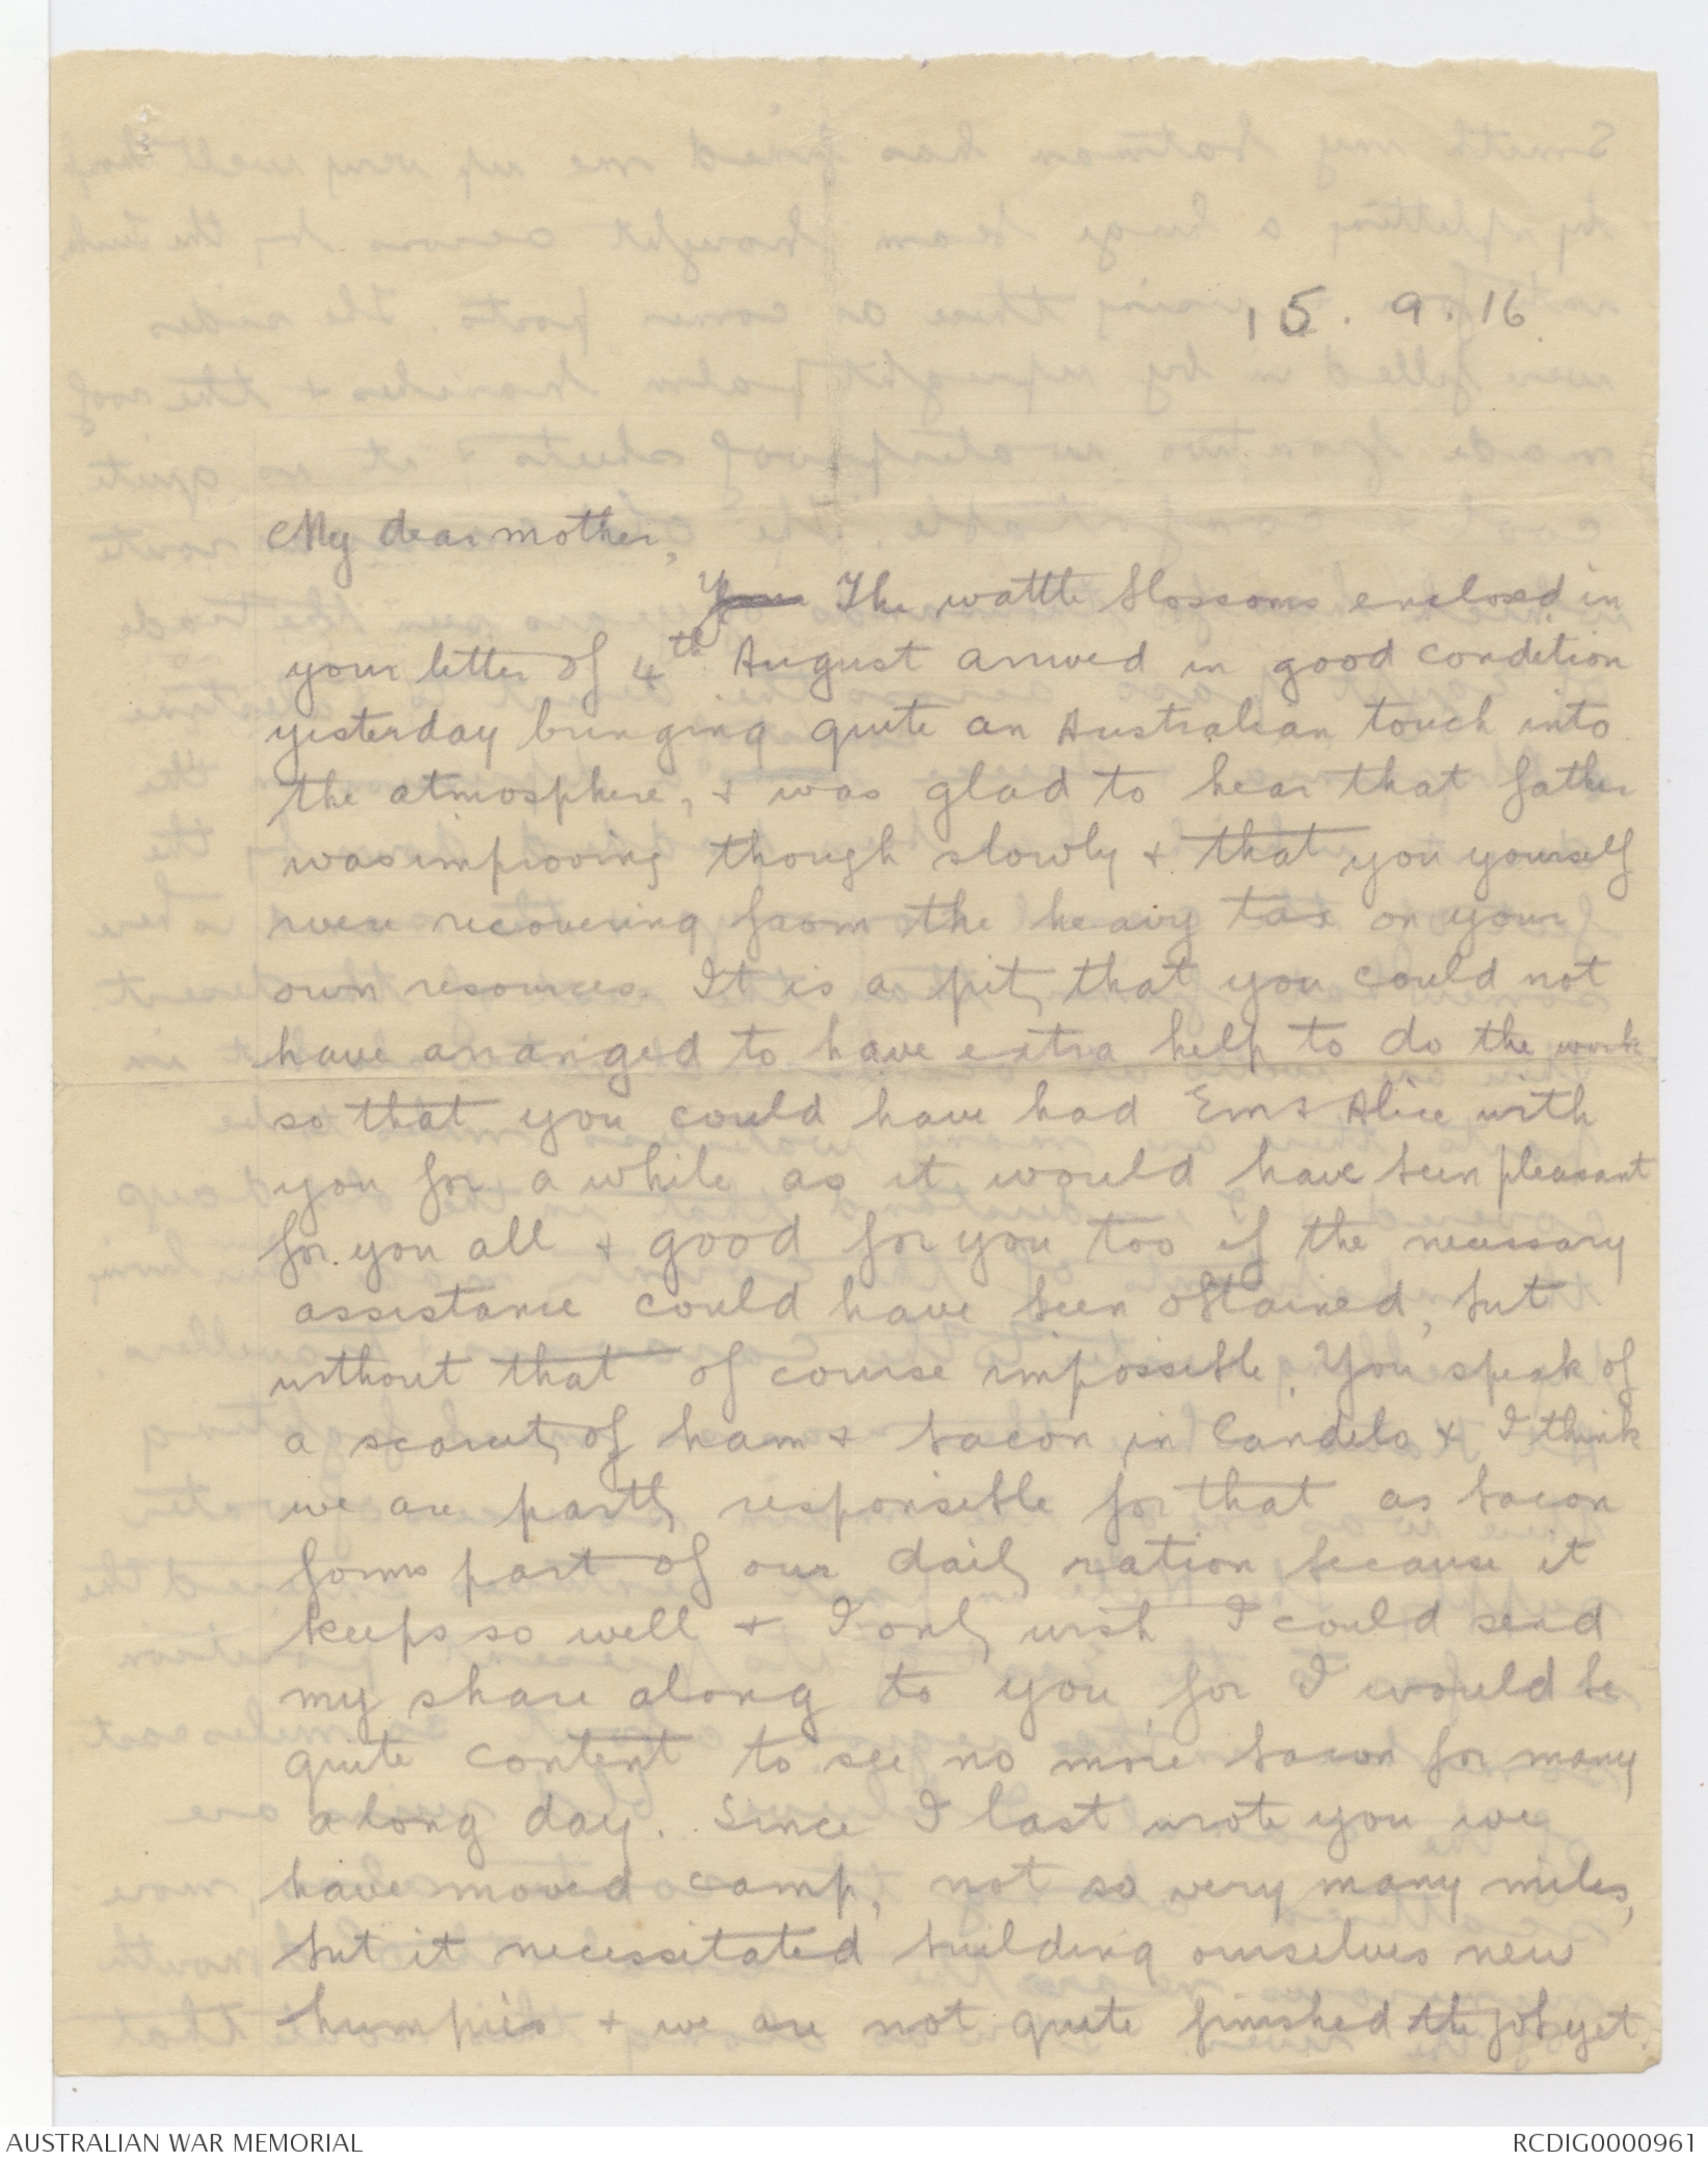 15. 9. 16
My dear mother,
Your The wattle blossoms enclosed in
your letter of 4th August arrived in good condition
yesterday bringing quite an Australian touch into
the atmosphere, & was glad to hear that father
was improving though slowly & that you yourself
were recovering from the heavy tax on your
own resources. It is a pity that you could not
have arranged to have extra help to do the work
so that you could have had Em & Alice with
you for a while as it would have been pleasant
for you all & good for you too if the necessary
assistance could have been obtained, but
without that of course impossible. You speak of
a scarcity of ham & bacon in Candelo & I think
we are partly responsible for that as bacon
forms part of our daily ration because it
keeps so well & I only wish I could send
my share along to you for I would be
quite content to see no more bacon for many
a long day. Since I last wrote you we
have moved camp, not so very many miles,
but it necessitated building ourselves new
humpies & we are not quite finished the job yet.
AUSTRALIAN WAR MEMORIAL
RCDIG0000961